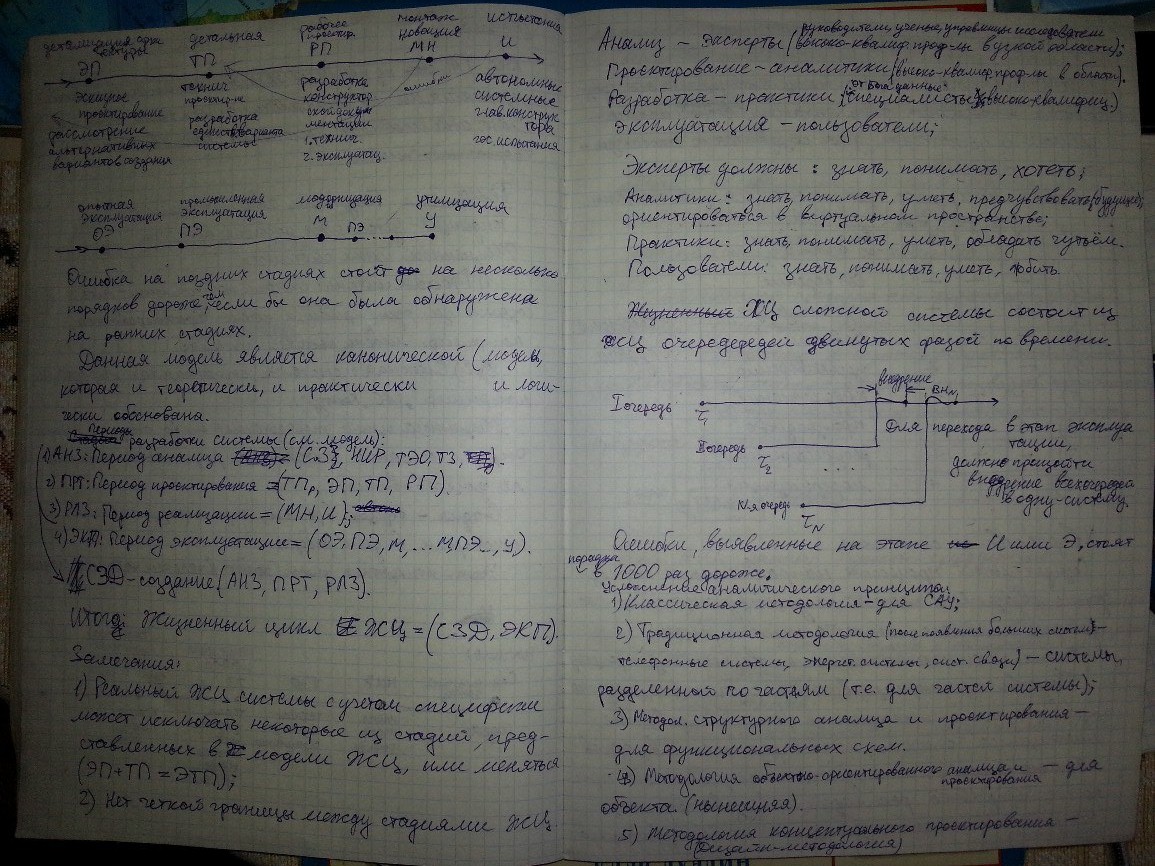 детальная
рабочее проектир.
монтаж
новация
испытания
ЭП
ТП
РП
МН
И
эскизное
проектирование
рассмотрение
альтернативных
вариантов создания
технич.
проектир-ие
разработка
единств. варианта
системы
разработка
конструктор
ской доку
ментации
1. технич.
2. эксплуатац.
ошибки
автономные
системные
глав. конструк
тора
гос. испытания
опытная
эксплуатация
промышленная
эксплуатация
модернизация
утилизация
ОЭ
ПЭ
М
ПЭ
У
Ошибка на поздних стадиях стоит на несколько
порядков дороже, чем если бы она была обнаружена
на ранних стадиях.
Данная модель является канонической (модель,
которая и теоретически, и практически и логи-
чески обоснована.
Периоды
разработки системы (см. модель):
1) АНЗ: Период анализа (СЗ, НИР, ТЭО, ТЗ, ).
2) ПРТ: Период проектирования = (ТПр, ЭП, ТП, РП).
3) РЛЗ: Период реализации = (МН, И);
4) ЭКП: Период эксплуатации = (ОЭ, ПЭ, М, ... МПЭ.., У).
СЗД - создание (АНЗ, ПРТ, РЛЗ).
Итого: Жизненный цикл ЖЦ = (СЗД, ЭКП).
Замечания:
1) Реальный ЖЦ системы с учетом специфики
может исключать некоторые из стадий, пред-
ставленных в модели ЖЦ, или меняться
(ЭП+ТП = ЭТП);
2) Нет четкой границы между стадиями ЖЦ.
руководители, ученые, управленцы исследователи
Анализ - эксперты (высоко-квалиф. проф-лы в узкой области);
Проектирование - аналитики (высоко-квалиф. проф-лы в области).
Разработка - практики (специалисты высоко-квалифиц.)
эксплуатация - пользователи;
Эксперты должны: знать, понимать, хотеть;
Аналитики: знать, понимать, уметь, предчувствовать (будущее);
ориентироваться в виртуальном пространстве;
Практики: знать, понимать, уметь, обладать чутьём.
Пользователи: знать, понимать, уметь, любить.
Жизненный ЖЦ сложной системы состоит из
ЖЦ очередередей двинутых фазой по времени.
внедрение
ВНN
I очередь
τ1
II очередь
τ2
...
N-я очередь
τN
Для перехода в этап эксплуа
тации,
должно произойти
внедрение всех очередей
в одну систему.
Ошибки, выявленные на этапе И или Э, стоят
порядка
в 1000 раз дороже.
Усложнение аналитического принципа:
1) Классическая методология - для САУ;
2) Традиционная методология (после появления больших систем) -
телефонные системы, энергет. системы, сист. связи) - системы,
разделенный по частям (т.е. для частей системы);
3) Методол. структурного анализа и проектирования -
для функциональных схем.
4) Методология объектно-ориентированного анализа и проектирования - для
объекта. (нынешняя).
5) Методология концептуального проектирования -
(дизайн-методология)